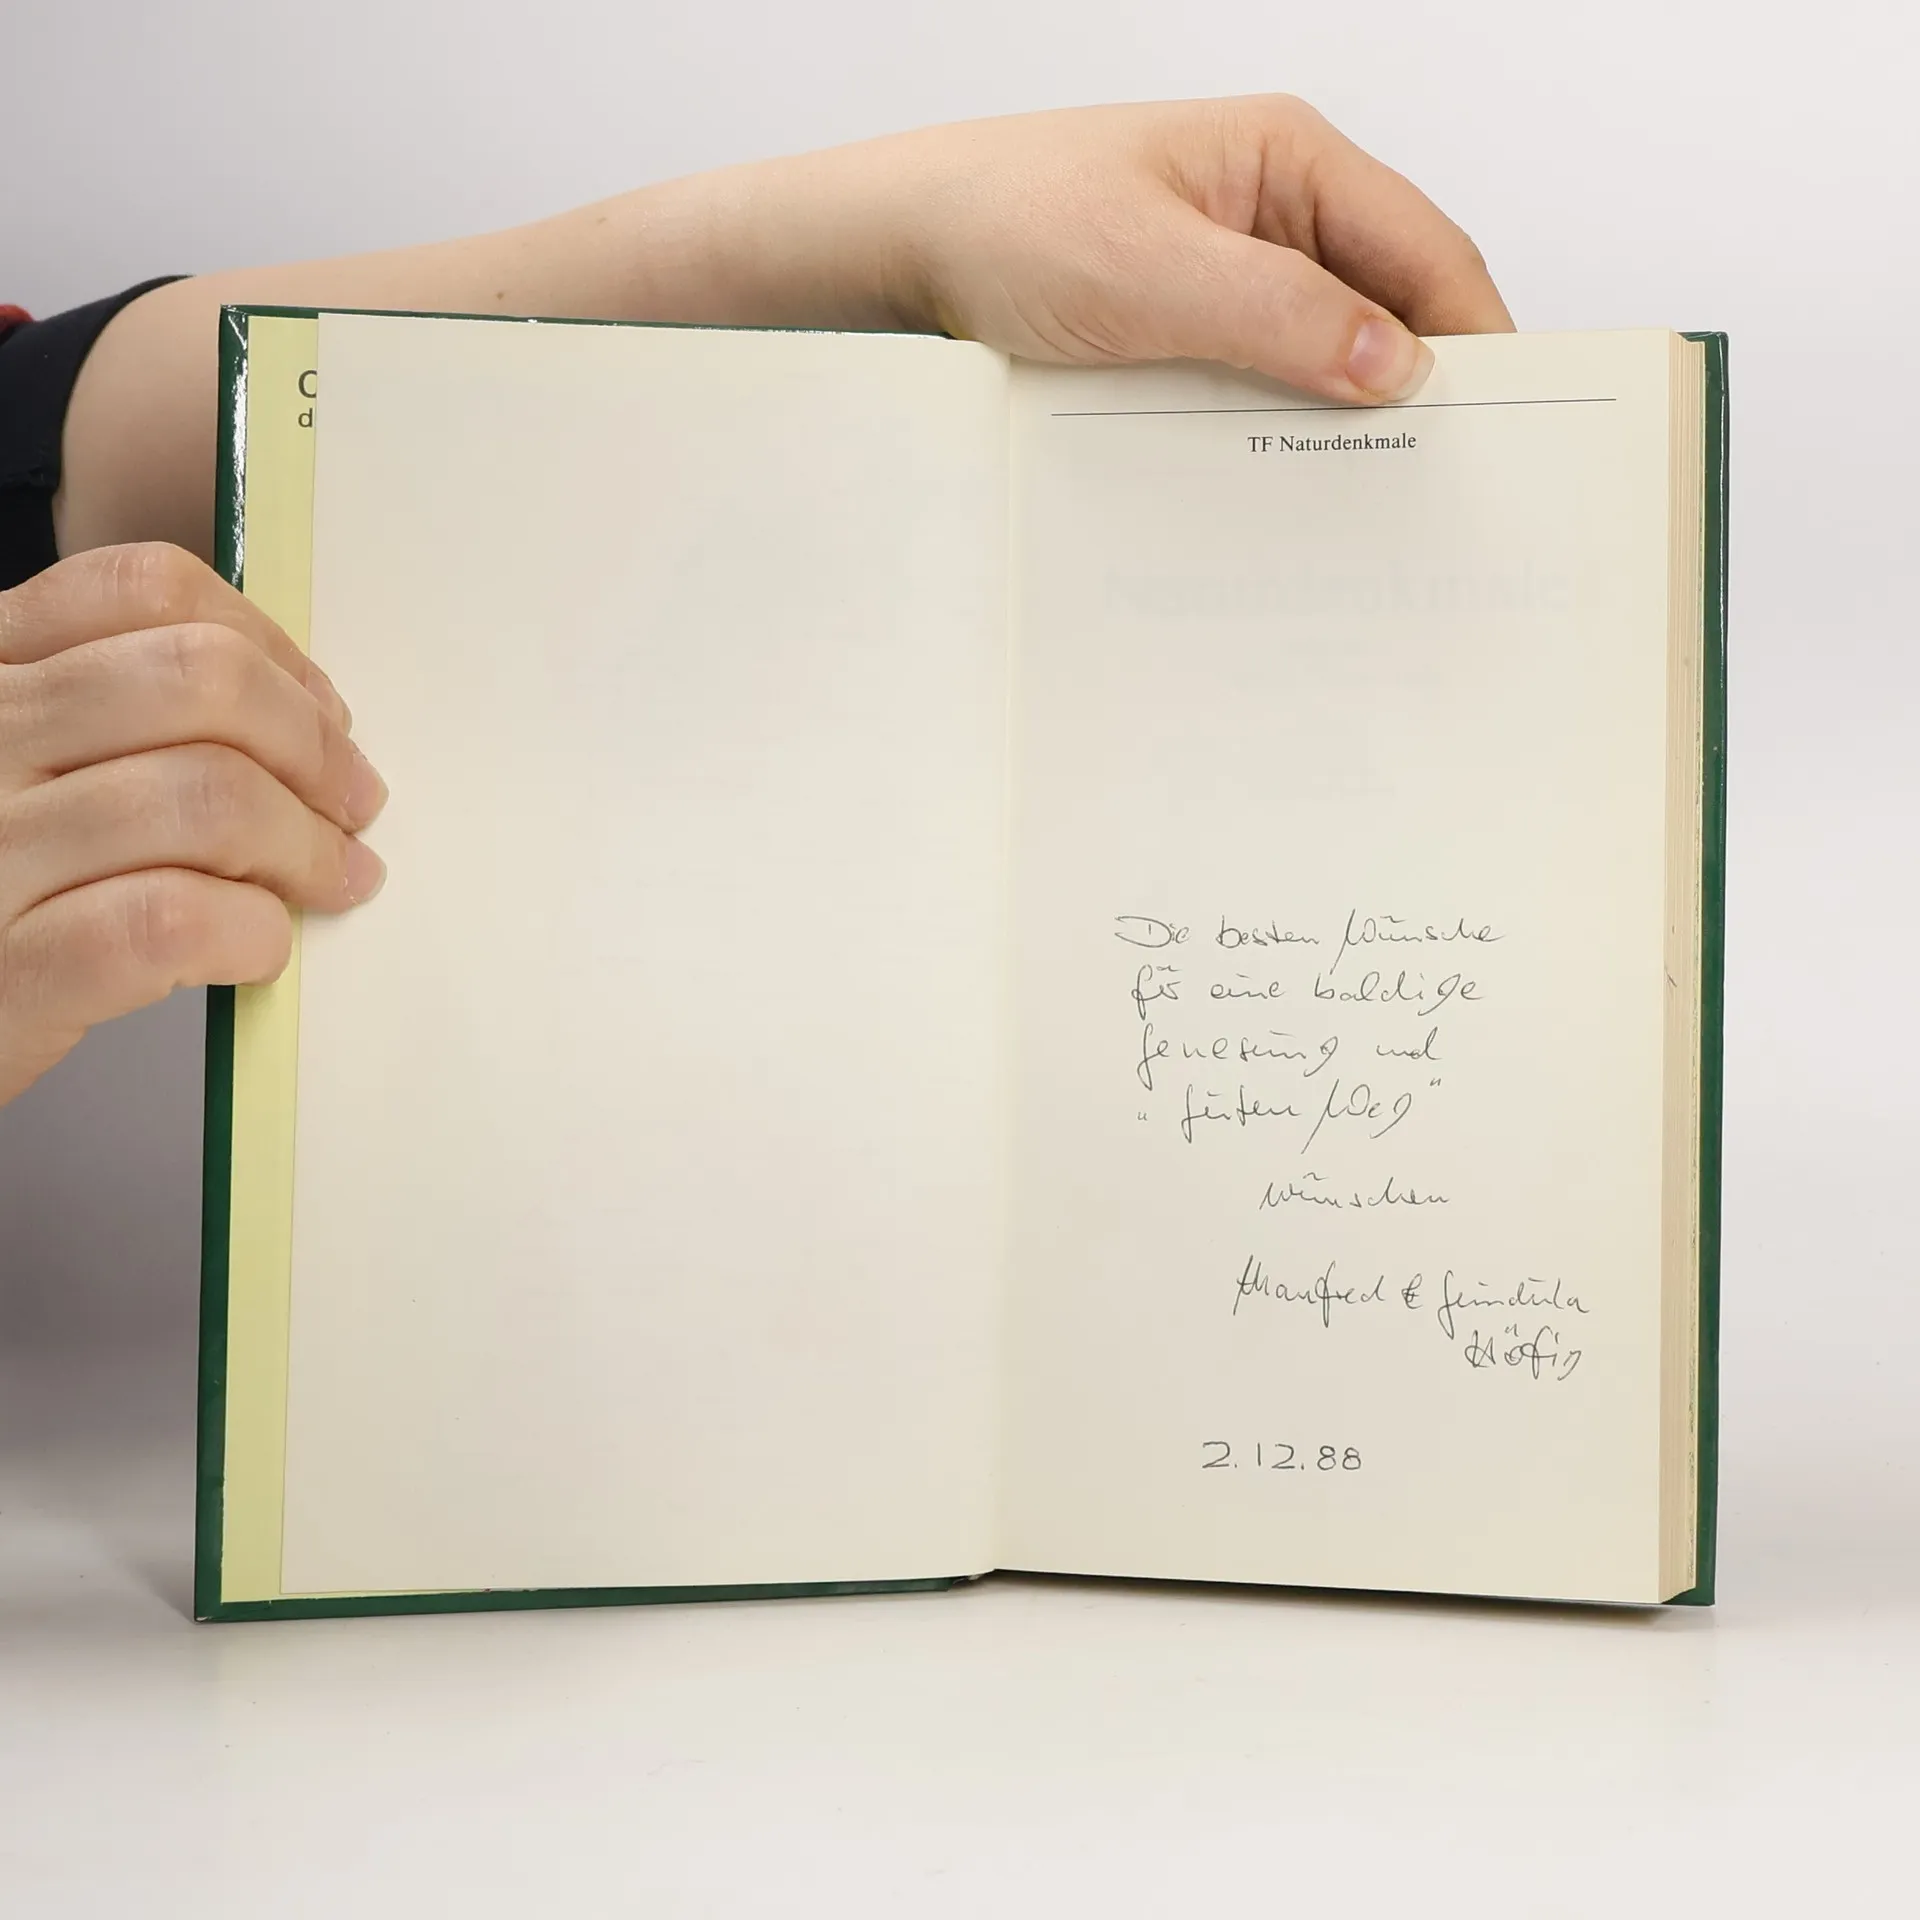 C
d
TF Naturdenkmale
Naturdenkmale
Die besten Wünsche
für eine baldige
Genesung und
„Guten Weg"
wünschen
Manfred & Gundula
2.12.88